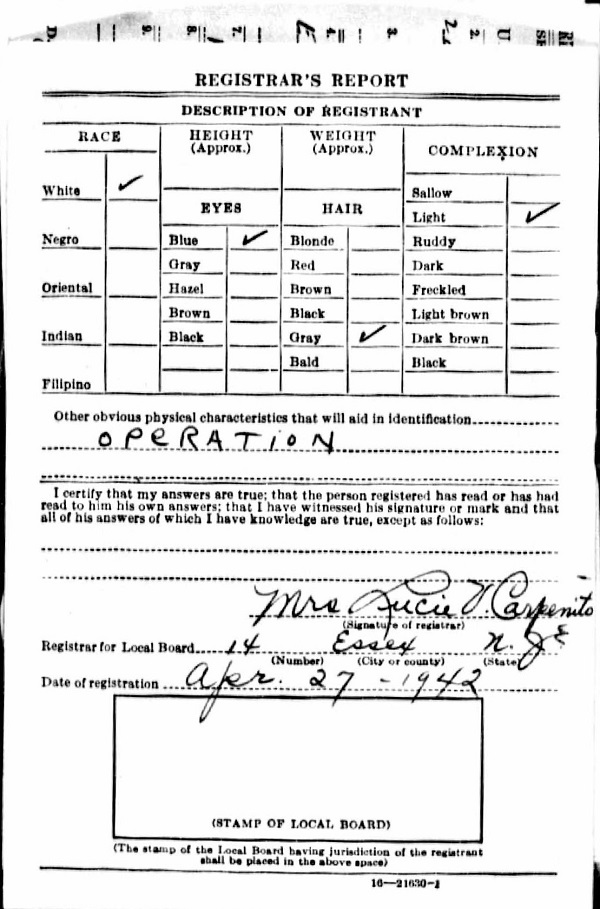 REGISTRAR'S REPORT
DESCRIPTION OF REGISTRANT
RACE
HEIGHT
(Approx.)
WEIGHT
(Approx.)
COMPLEXION
White ✓
Negro
Oriental
Indian
Filipino
EYES
Blue ✓
Gray
Hazel
Brown
Black
HAIR
Blonde
Red
Brown
Black
Gray ✓
Bald
Sallow
Light ✓
Ruddy
Dark
Freckled
Light brown
Dark brown
Black
Other obvious physical characteristics that will aid in identification
OPERATION
I certify that my answers are true; that the person registered has read or has had
read to him his own answers; that I have witnessed his signature or mark and that
all of his answers of which I have knowledge are true, except as follows:
Mrs Lucie V. Carpenito
(Signature of registrar)
Registrar for Local Board 14 Essex N. J.
(Number) (City or county) (State)
Date of registration Apr. 27 - 1942
(STAMP OF LOCAL BOARD)
(The stamp of the Local Board having jurisdiction of the registrant
shall be placed in the above space)
16—21630-1